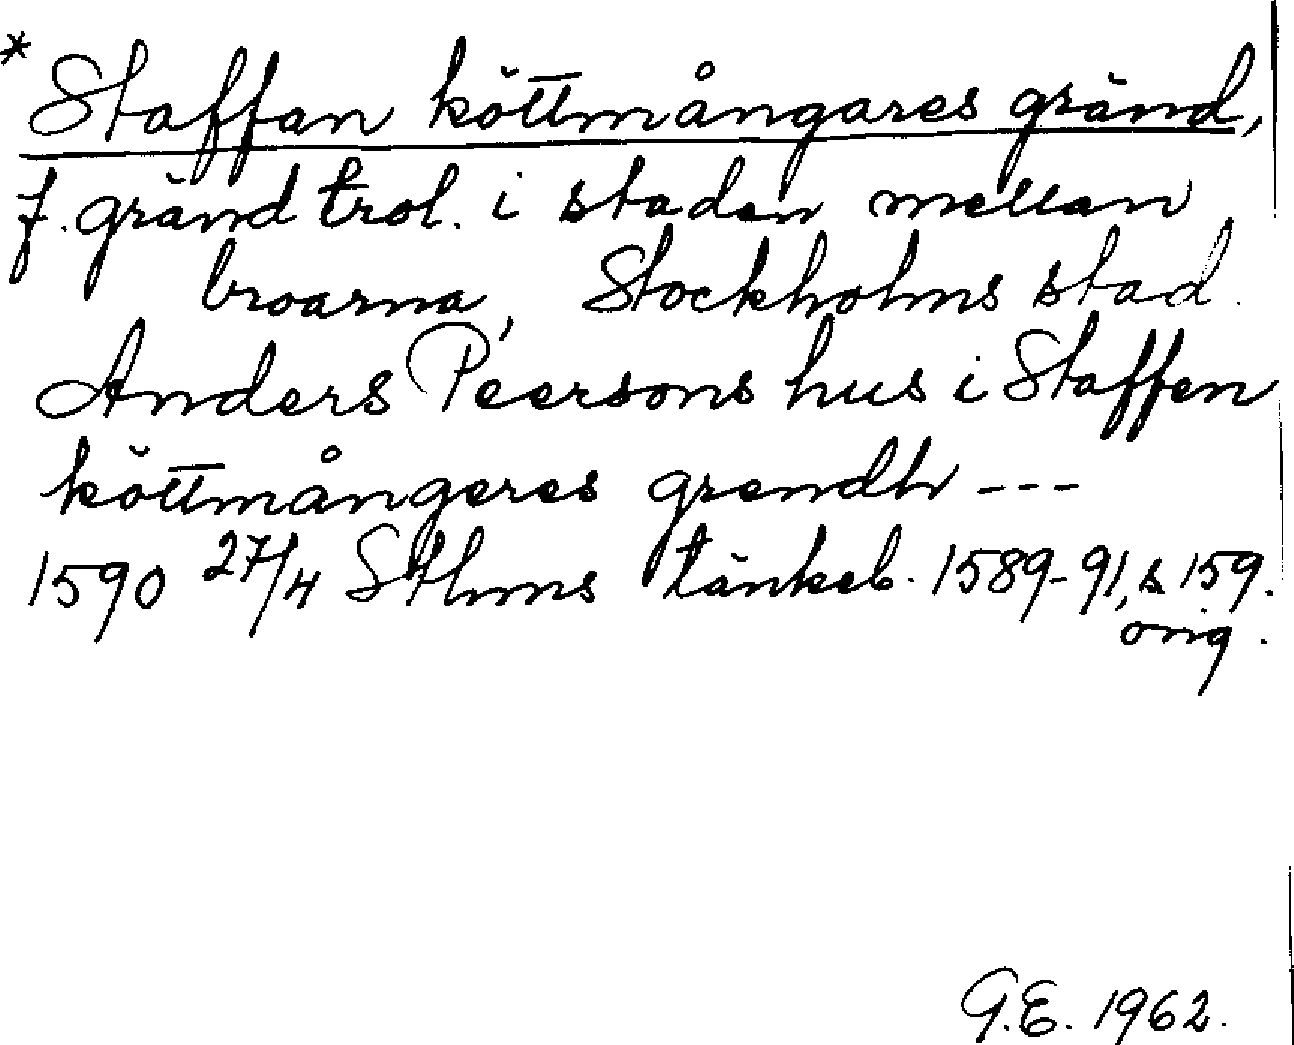 * Staffan köttmångares gränd,
f. gränd trol. i staden mellan
broarna, Stockholms stad.
Anders Peersons hus i Staffen
köttmångeres grendh ---
1590 27/4 Sthms tänkeb. 1589-91, s 159.
orig.
G.E. 1962.